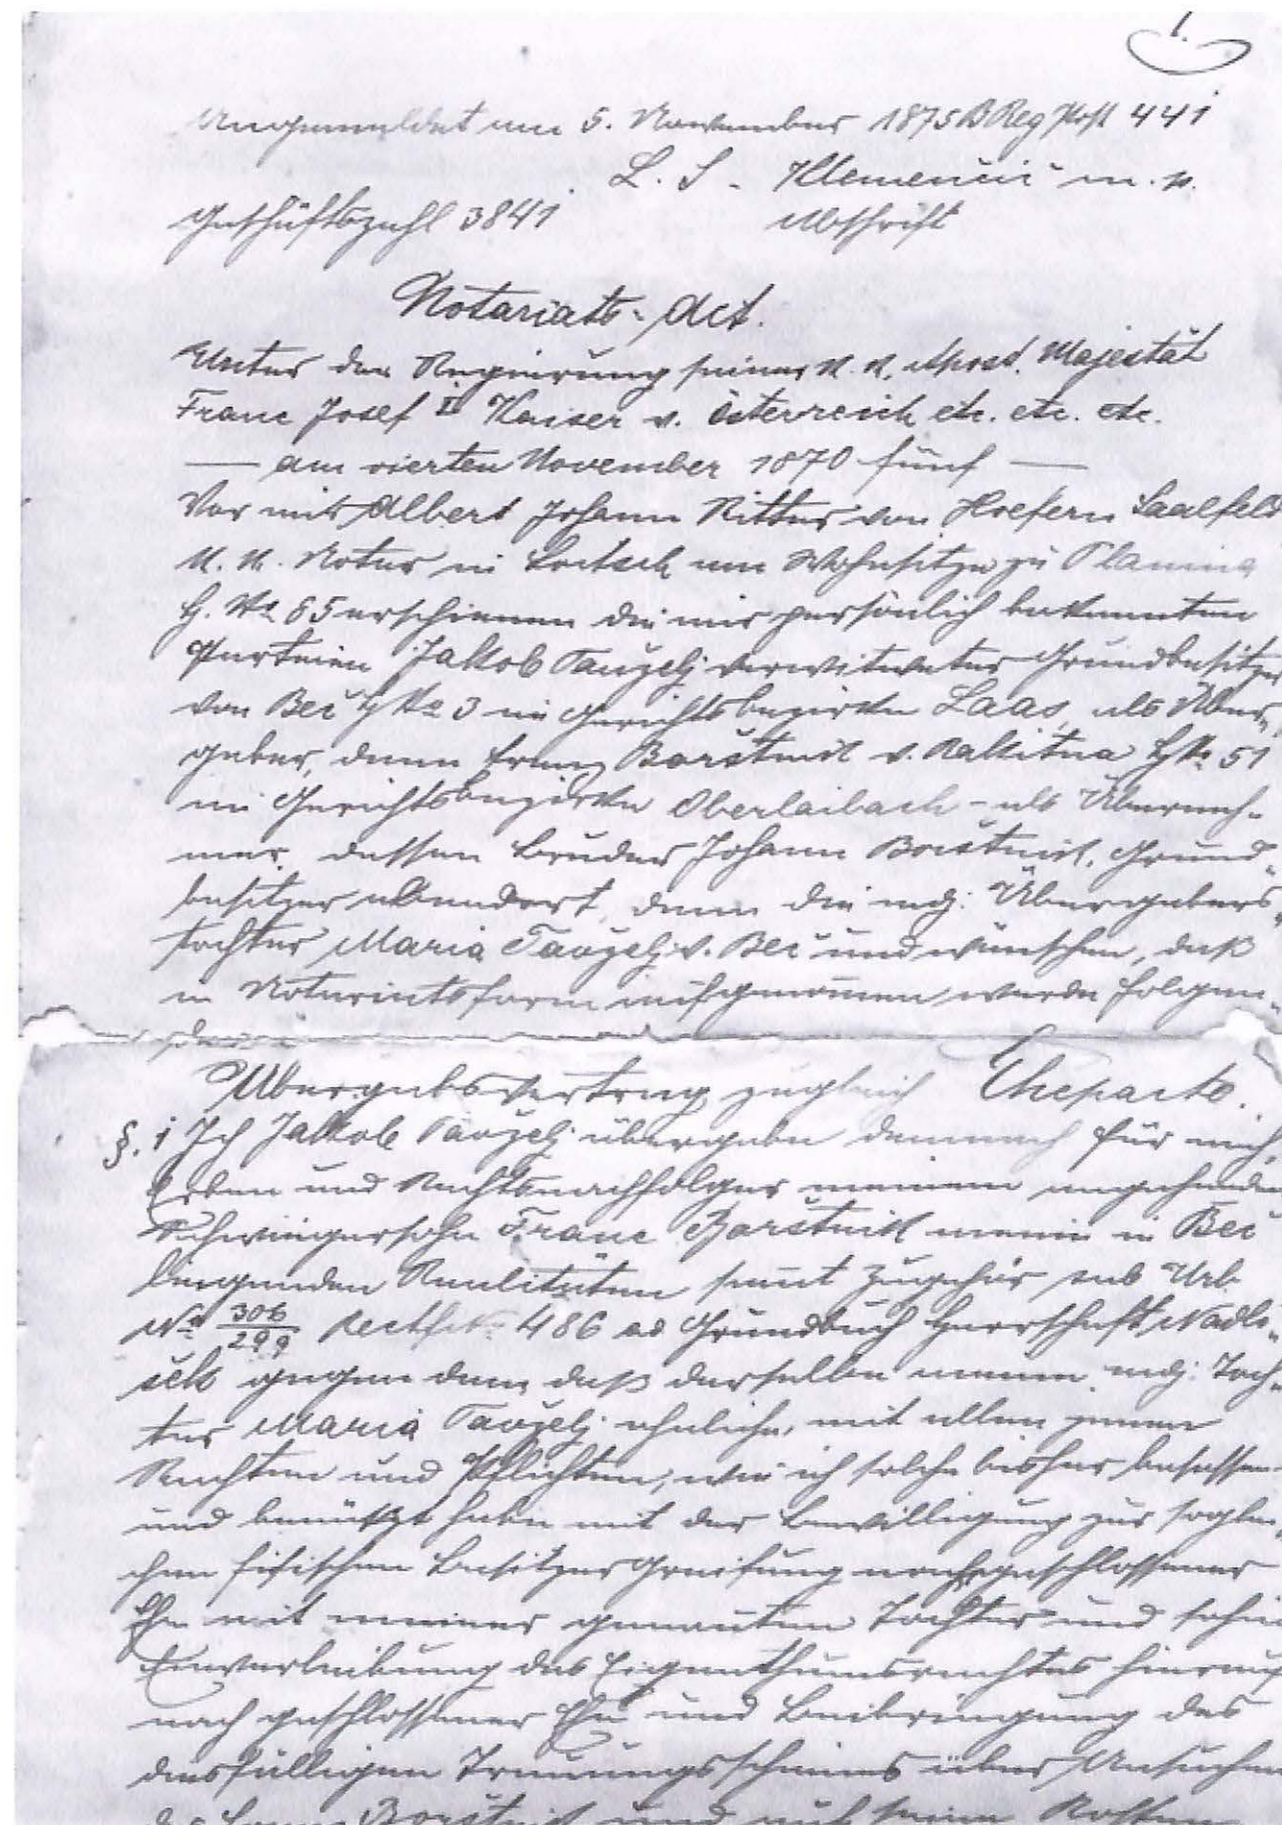 1.
Angemeldet am 5. November 1875 B Reg Post 441
L. S. Klemenčič m. p.
Geschäftszahl 3841 Abschrift
Notariats-Act.
Unter der Regierung seiner k. k. Apost. Majestät
Franc Josef I. Kaiser v. Österreich etc. etc. etc.
— am vierten November 1870 fünf —
Vor mir Albert Johann Ritter von Hoefern Saalfeld
k. k. Notar in Loitsch am Wohnsitze zu Planina
H. No 85 erschienen die mir persönlich bekannten
Parteien Jakob Tavželj verwitweter Grundbesitzer
von Beč H No 3 im Gerichtsbezirke Laas, als Über-
geber, dann Franz Borštnik v. Rakitna H No 51
im Gerichtsbezirke Oberlaibach - als Überneh-
mer, dessen Bruder Johann Borštnik, Grund-
besitzer ebendort, dann die mdj: Übergebers-
tochter Maria Tavželj v. Beč und wünschen, daß
in Notariatsform aufgenommen werde folgen-
der
Übergabsvertrag zugleich Ehepacte.
§. 1 Ich Jakob Tavželj übergebe demnach für mich,
Erben und Rechtsnachfolger meinem angehenden
Schwiegersohn Franc Borštnik meine in Beč
liegenden Realitäten samt Zugehör sub Urb.
No 306/299 Rectf No 486 ad Grundbuch Herrschaft Nadli-
šek gegen dem, daß derselbe meine mdj: Toch-
ter Maria Tavželj eheliche, mit allen jenen
Rechten und Pflichten, wie ich solche bisher besessen
und benützt habe mit der Bewilligung zur soglei-
chen fisischen Besitzergreifung nach geschlossener
Ehe mit meiner genannten Tochter und sohin
Einverleibung des Eigenthumsrechtes hierauf
nach geschlossener Ehe und Beibringung des
diesfälligen Trauungsscheines über Ansuchen
des Franc Borštnik und auf seine Kosten